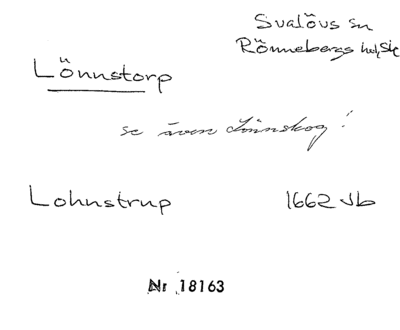 Svalövs sn
Rönnebergs hd, Sk
Lönnstorp
se även Lönnskog!
Lohnstrup 1662 Jb
Nr 18163